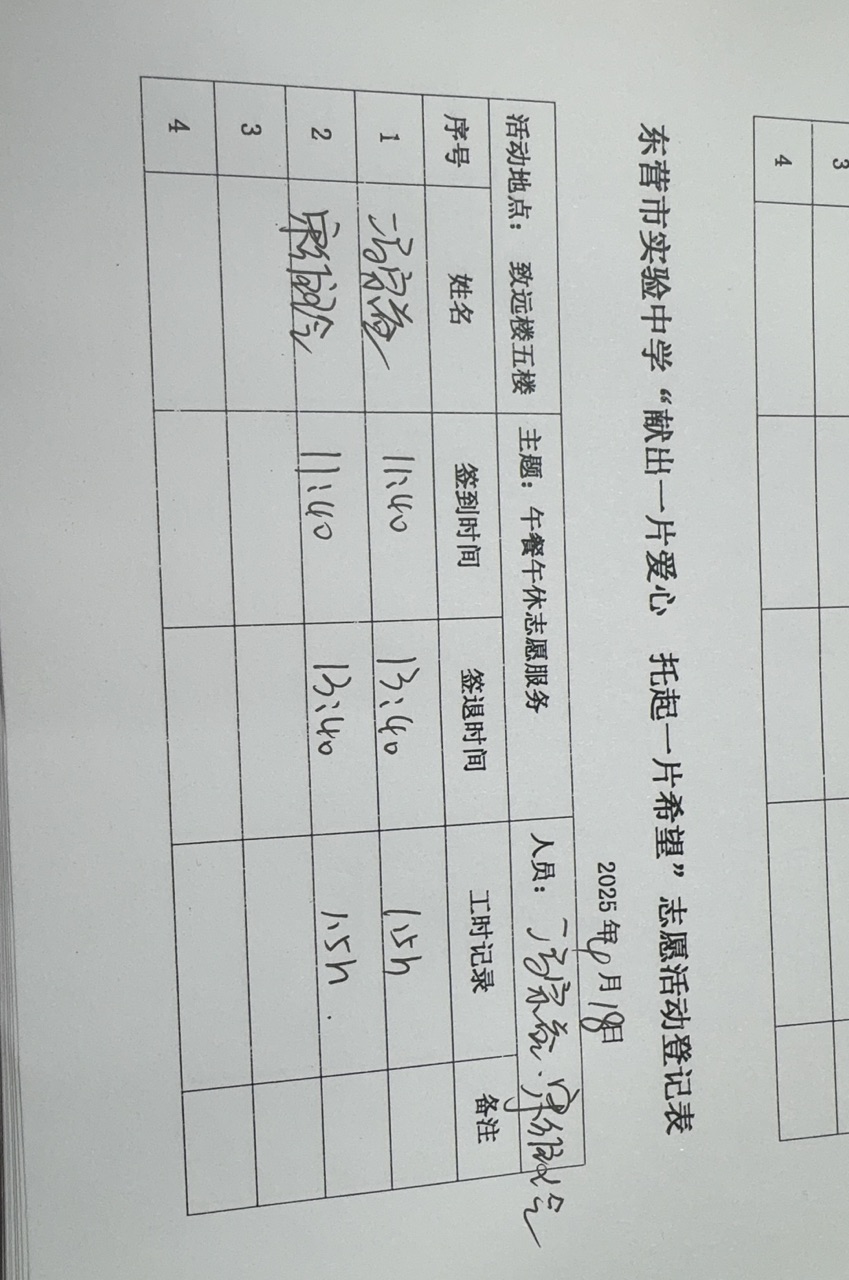 3
4
东营市实验中学“献出一片爱心 托起一片希望”志愿活动登记表
2025年 月18日
活动地点: 致远楼五楼 主题: 午餐午休志愿服务 人员:
序号 姓名 签到时间 签退时间 工时记录 备注
1 11:40 13:40 1.5h
2 11:40 13:40 1.5h.
3
4